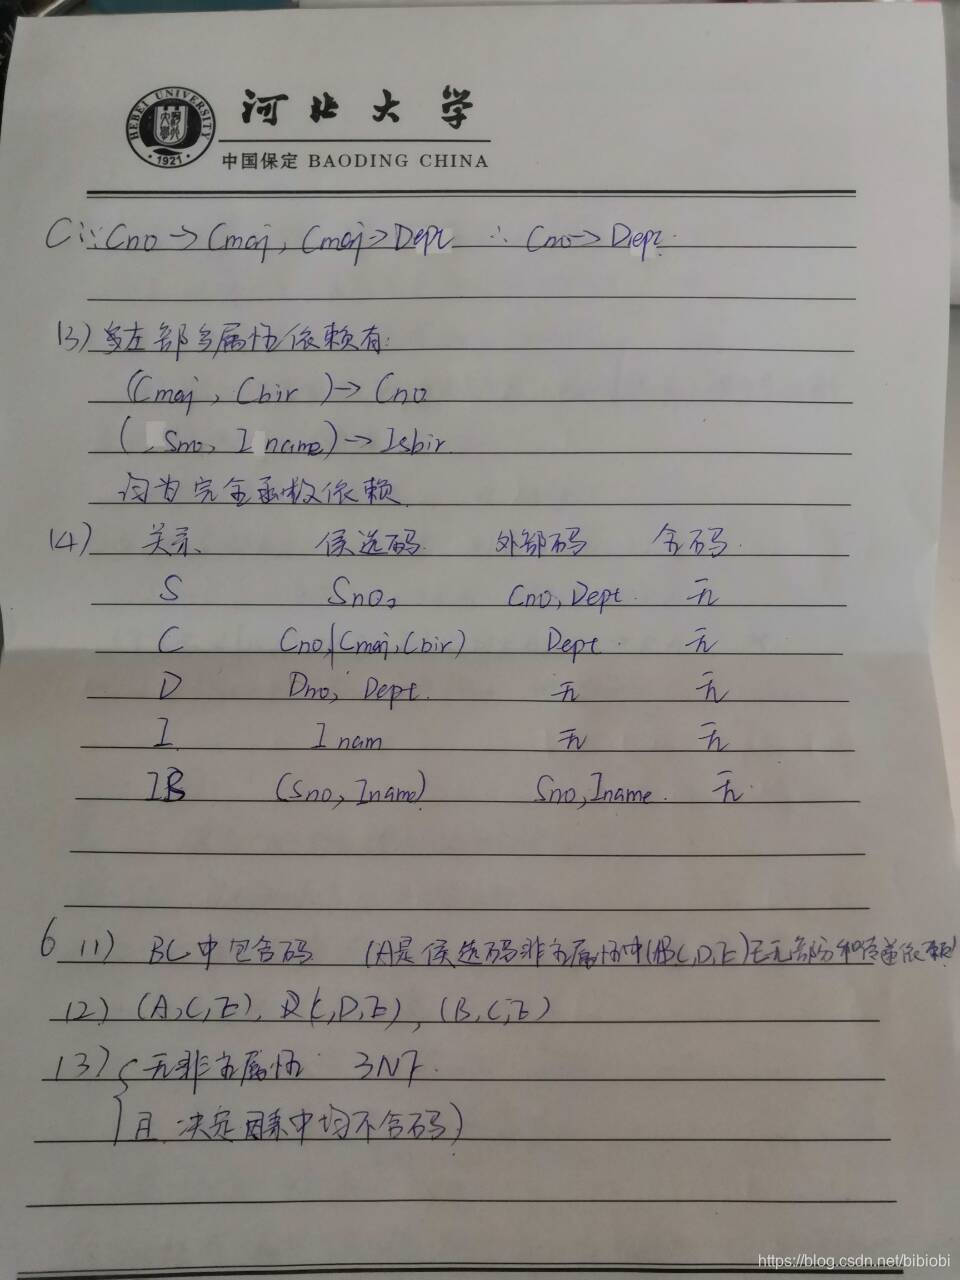 HEBEI UNIVERSITY
1921
河北大学
中国保定 BAODING CHINA
C: ∵ Cno → Cmaj, Cmaj → Dept ∴ Cno → Dept.
(3) 左部多属性依赖有:
(Cmaj, Cbir) → Cno
(Sno, Iname) → Isbir
均为完全函数依赖
(4) 关系 候选码 外部码 全码.
S Sno, Cno, Dept. 无
C Cno, (Cmaj, Cbir) Dept. 无
D Dno, Dept. 无 无
I Inam 无 无
IB (Sno, Iname) Sno, Iname. 无.
6 (1) BC中包含码 (A是候选码非主属性中(B,C,D,E)无部分和传递依赖)
(2) (A,C,E), (C,D,E), (B,C,E)
(3) 无非主属性 3NF.
且 决定因素中均不含码)
https://blog.csdn.net/bibiobi